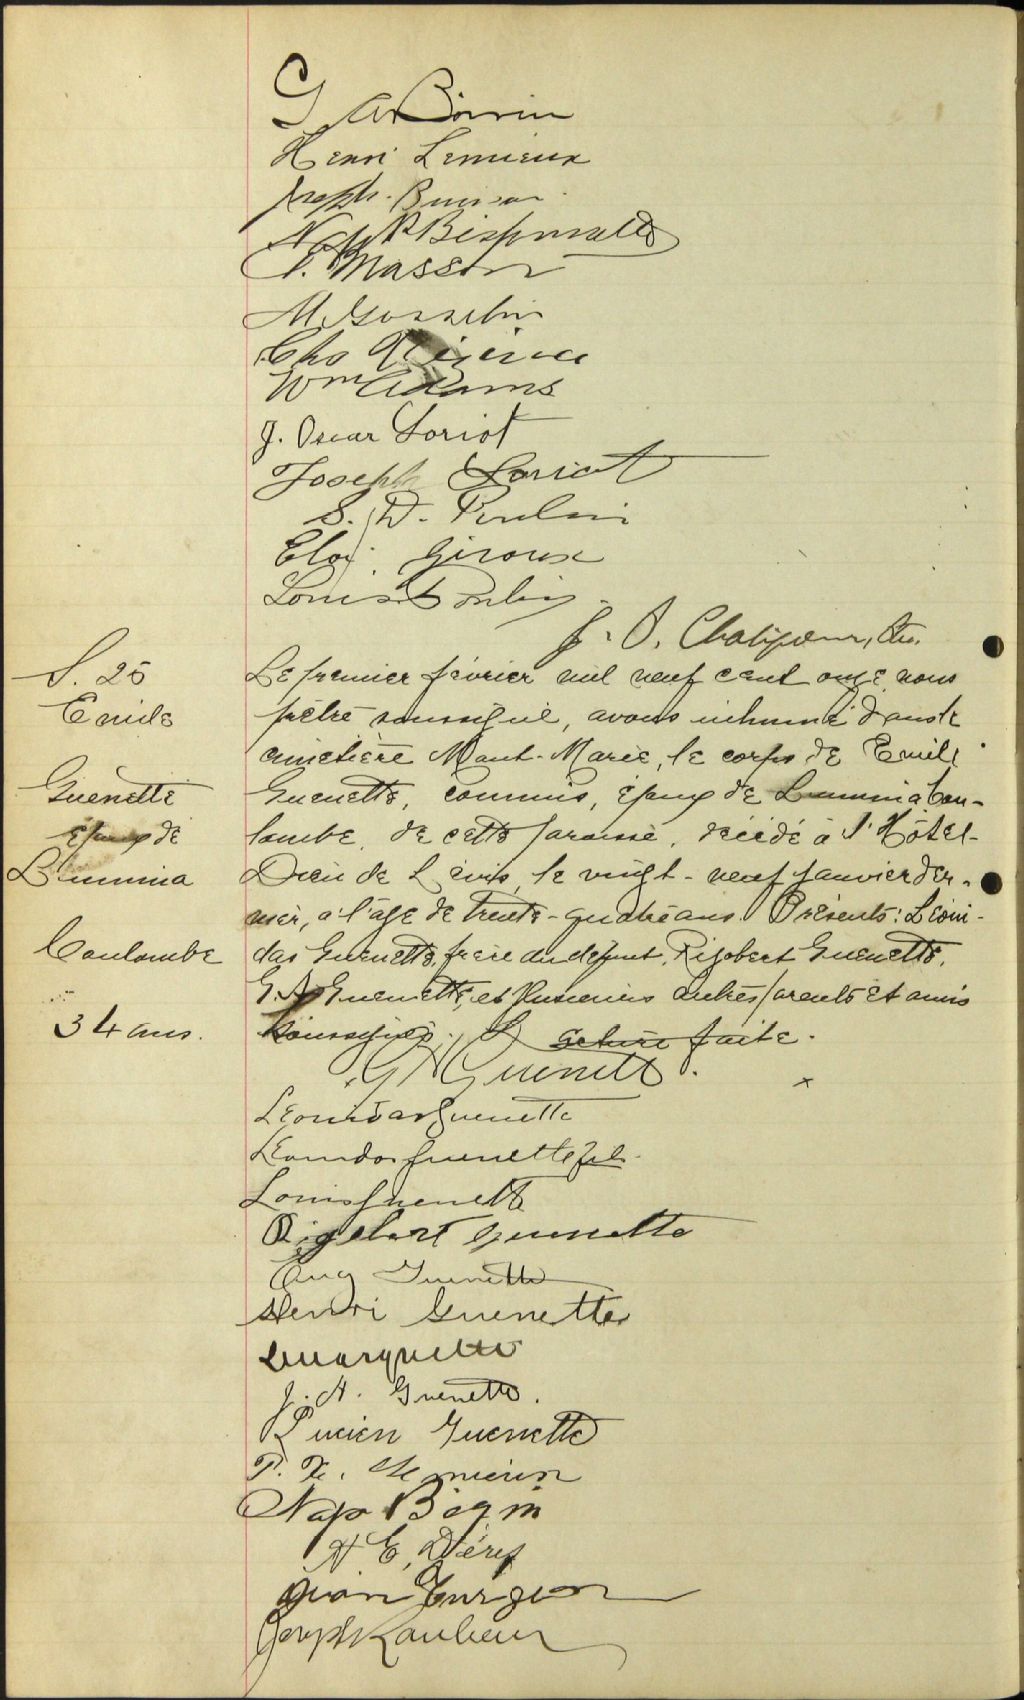 Henri Lemieux
Joseph
Nap
Masson
M. Gosselin
Chs
Wm Adams
J. Oscar Loriot
Joseph Loriot
S. D. Poulin
Eloi Giroux
Louis Poulin
J. O.
S. 25
Emile
Guenette
époux de
Coulombe
34 ans.
Le premier février mil neuf cent onze, nous
prêtre soussigné, avons inhumé dans le
cimetière Mont-Marie, le corps de Emile
Guenette, commis, époux de Lumina Cou-
lombe, de cette paroisse, décédé à l'Hôtel-
Dieu de Lévis, le vingt-neuf janvier der-
nier, à l'âge de trente-quatre ans. Présents: Léoni-
das Guenette, frère du défunt, Rigobert Guenette,
G. A. Guenette, et plusieurs autres parents et amis
soussignés. Lecture faite.
G A Guenette
x
Leonidas Guenette
Leonidas Guenette fils
Louis Guenette
Rigobert Guenette
Aug Guenette
Henri Guenette
J. A. Guenette.
Lucien Guenette
P. Lemieux
Nap Begin
A E
Turgeon
Joseph